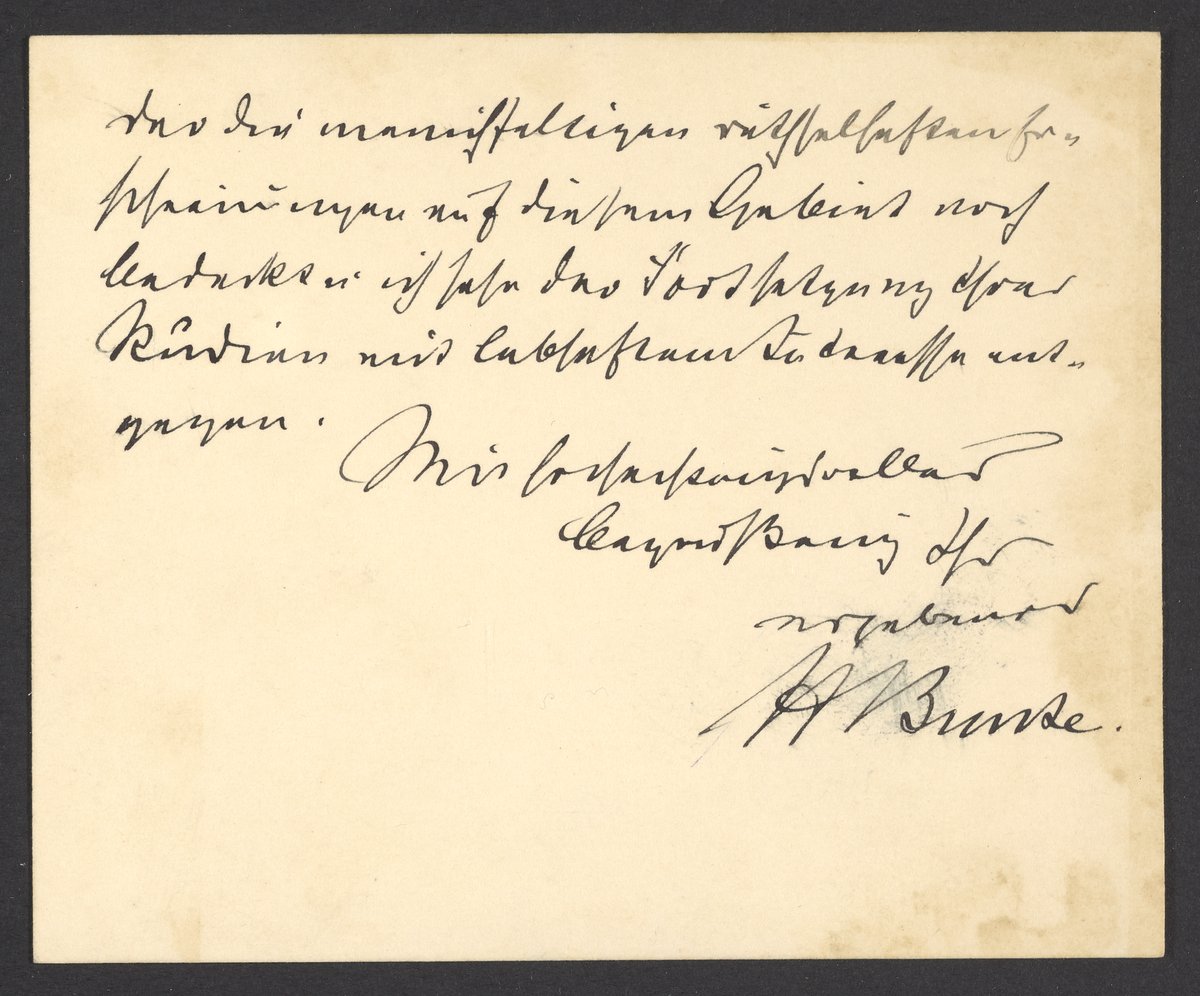 der die mannichfaltigen räthselhaften Er-
scheinungen auf diesem Gebiet noch
bedeckt u ich sehe der Fortsetzung Ihrer
Studien mit lebhaftem Interesse ent-
gegen.
Mit hochachtungsvoller
Begrüßung Ihr
ergebener
H Bunte.